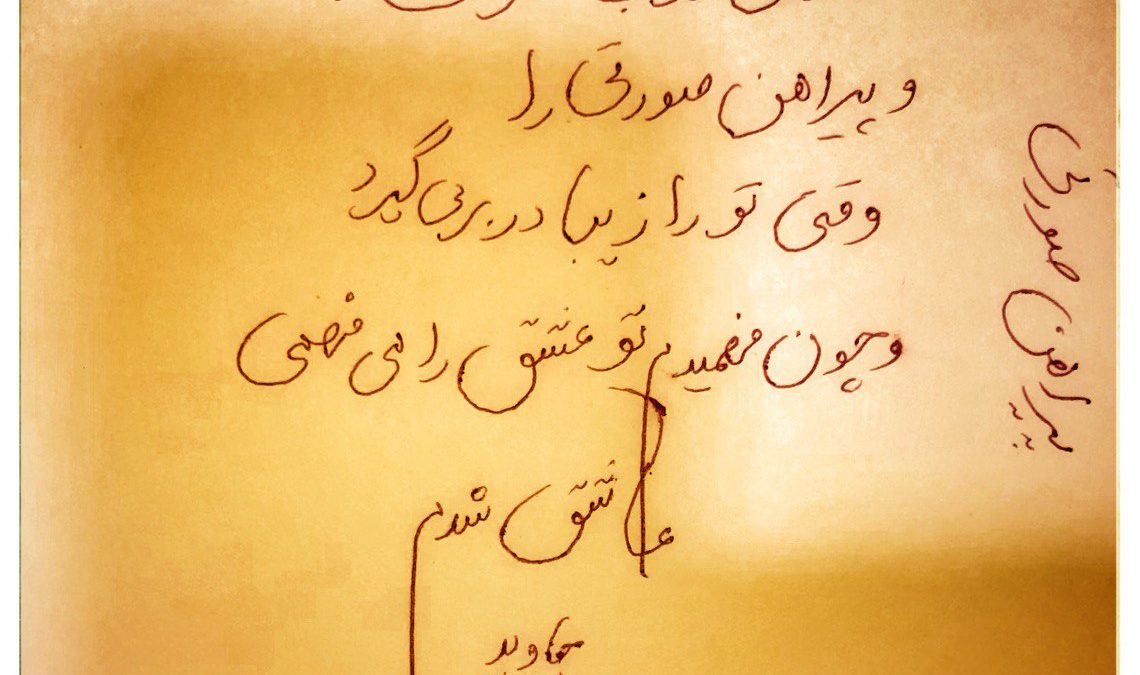 و پیراهن صورتی را
وقتی تو را زیبا در بر می گیرد
و چون فهمیدم تو عشق را می فهمی
عاشق شدم
جاوید
پیراهن صورتی